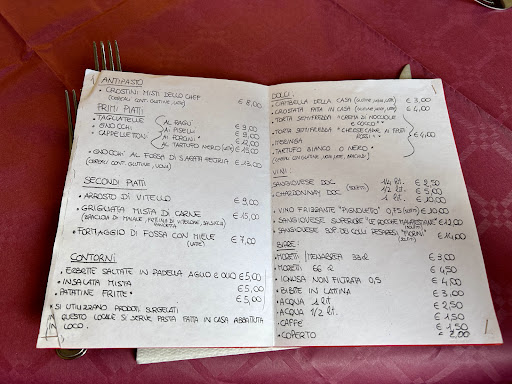 ANTIPASTO
• CROSTINI MISTI DELLO CHEF € 8,00
(CEREALI CONT. GLUTINE, UOVA)
PRIMI PIATTI
• TAGLIATELLE AL RAGÙ € 9,00
• GNOCCHI AI PISELLI € 9,00
• CAPPELLETTONI AI PORCINI * € 12,00
AL TARTUFO NERO (UOVA) € 15,00
• GNOCCHI AL FOSSA DI SAGATA FESTRIA € 13,00
(CEREALI CONT. GLUTINE, UOVA)
SECONDI PIATTI
• ARROSTO DI VITELLO € 9,00
• GRIGLIATA MISTA DI CARNE € 15,00
(BRACIOLA DI MAIALE, FETTINA DI VITELLONE, SALSICCIA
PANCETTA
• FORMAGGIO DI FOSSA CON MIELE € 7,00
(LATTE)
CONTORNI
• ERBETTE SALTATE IN PADELLA AGLIO E OLIO € 5,00
• INSALATA MISTA € 5,00
• PATATINE FRITTE * € 5,00
* SI UTILIZZANO PRODOTTI SURGELATI
IN QUESTO LOCALE SI SERVE PASTA FATTA IN CASA ABBATTUTA
IN LOCO.
DOLCI
• CIAMBELLA DELLA CASA (GLUTINE, UOVA, LATTE) € 3,00
• CROSTATA FATTA IN CASA (GLUTINE, UOVA, LATTE) € 4,00
• TORTA SEMIFREDDA *CREMA DI NOCCIOLE
E COCCO **
• TORTA SEMIFREDDA *CHEESECAKE AI FRUTTI
ROSSI * € 4,00
• MERINGA
• TARTUFO BIANCO O NERO *
(CEREALI CON GLUTINE, UOVA, LATTE, ARACHIDI)
VINI:
SANGIOVESE DOC 1/4 lt. € 2,50
• CHARDONNAY DOC (SOLFITI) 1/2 lt. € 5,00
1 lt. € 10,00
• VINO FRIZZANTE "PIGNOLETTO" 0,75 (SOLFITI) € 10,00
• SANGIOVESE SUPERIORE "LE ROCCHE MALATESTIANE" € 12,00
(SOLFITI)
• SANGIOVESE SUP. DEI COLLI PESARESI "FIORINI" € 14,00
(SOLFITI)
BIRRE:
MORETTI /MENABREA 33 cl € 3,00
• MORETTI 66 cl € 4,50
• ICHNUSA NON FILTRATA 0,5 € 4,00
• BIBITE IN LATTINA € 3,00
• ACQUA 1 lt € 2,50
• ACQUA 1/2 lt. € 1,50
• CAFFÈ € 1,50
• COPERTO € 2,00